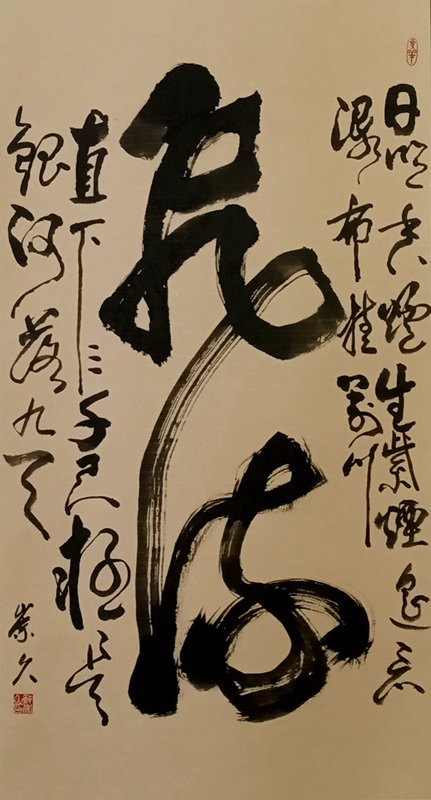 日照香爐生紫煙遥看
瀑布挂前川
飛流
直下三千尺疑是
銀河落九天
崇久